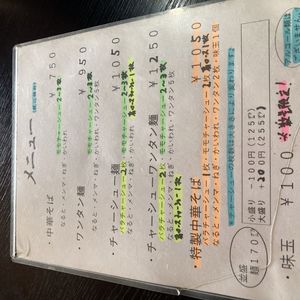 メニュー
・中華そば ￥750
なると・メンマ・ねぎ・かいわれ・モモチャーシュー2~3枚
・ワンタン麺 ￥950
なると・メンマ・ねぎ・かいわれ・ワンタン5枚
モモチャーシュー2~3枚
・チャーシュー麺 ￥1050
なると・メンマ・ねぎ・かいわれ
バラチャーシュー2枚・モモチャーシュー2~3枚
・チャーシューワンタン麺 ￥1250
なると・メンマ・ねぎ・かいわれ・ワンタン
バラチャーシュー2枚・モモチャーシュー2~3枚
・特製中華そば ￥1050
なると・メンマ・ねぎ・かいわれ・ワンタン2枚・味玉1個
バラチャーシュー1枚・モモチャーシュー2枚
＊チャーシューの枚数は大きさにより変わります
並盛
麺170g
小盛り －100円(125g)
大盛り ＋200円(255g)
・味玉 ￥100